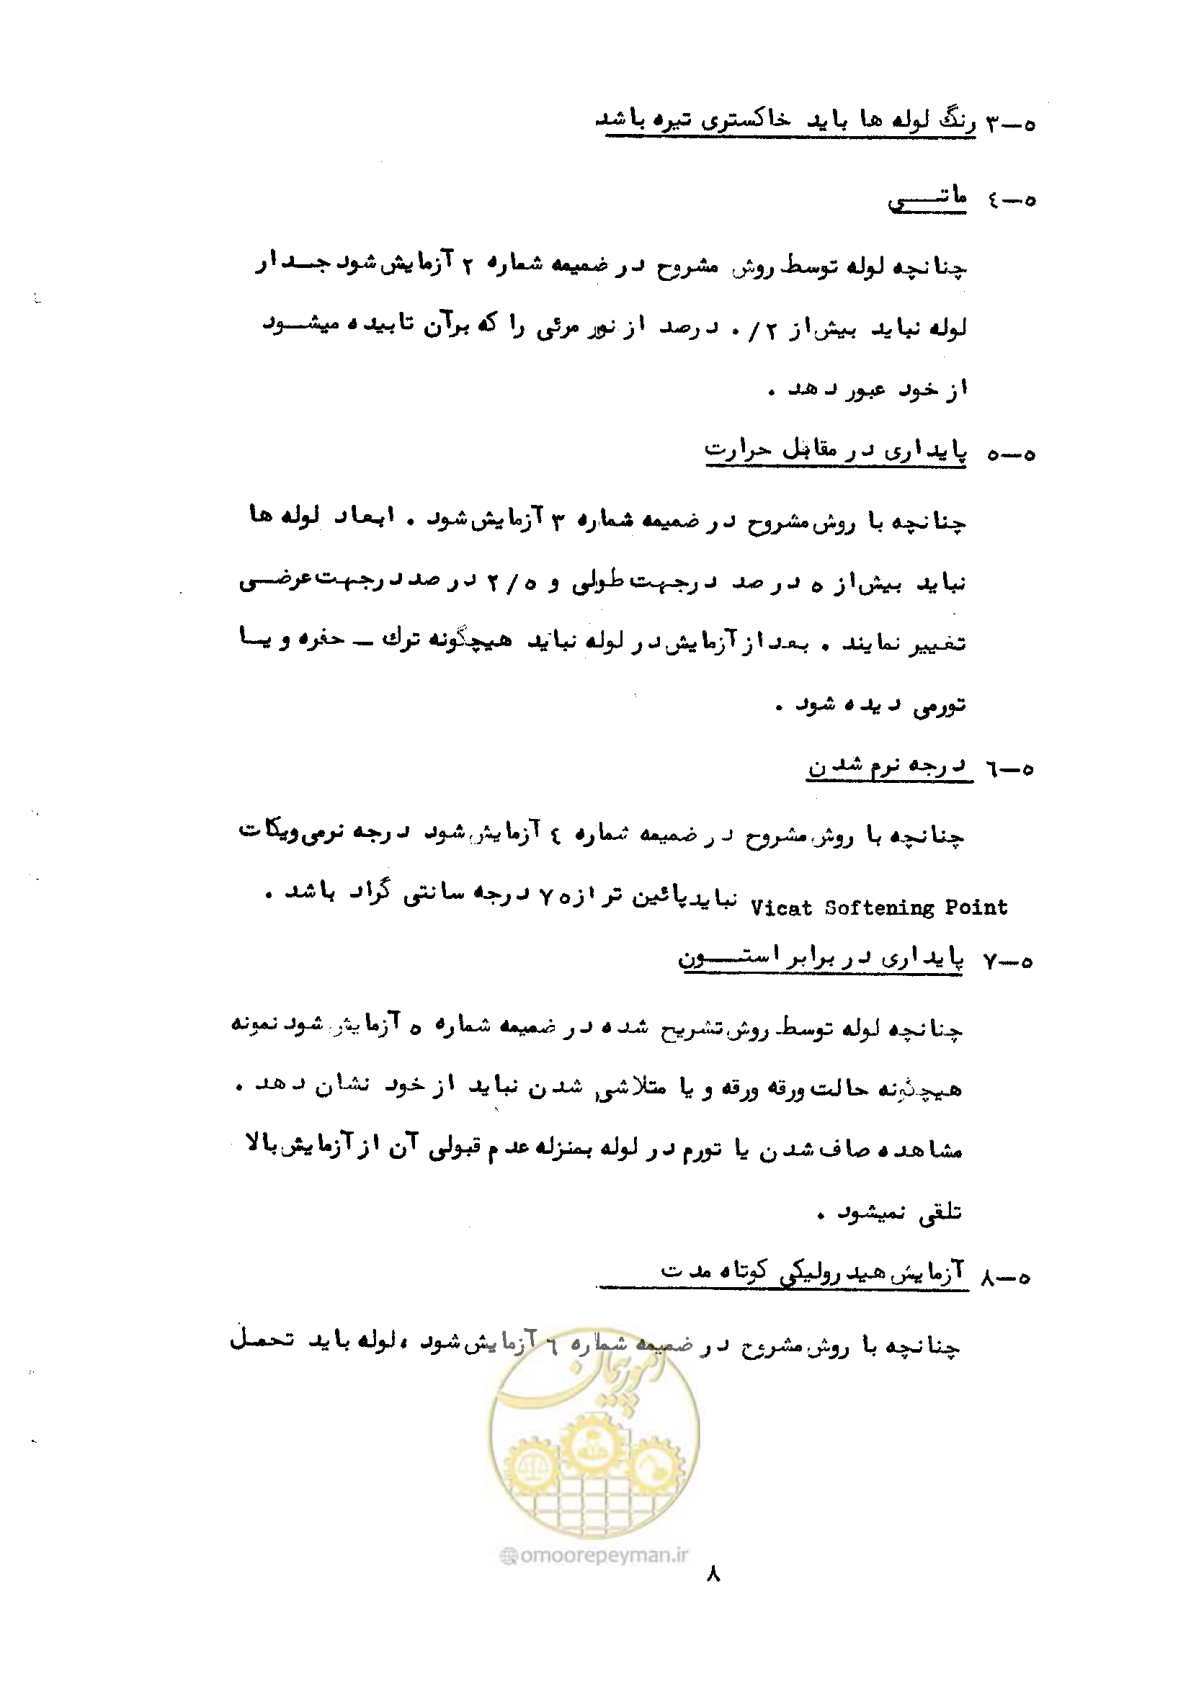 ۵–۳ رنگ لوله ها باید خاکستری تیره باشد
۵–۴ ماتـــی
چنانچه لوله توسط روش مشروح در ضمیمه شماره ۲ آزمایش شود جــدار
لوله نباید بیش از ۰/۲ درصد از نور مرئی را که برآن تابیده میشــود
از خود عبور دهد .
۵–۵ پایداری در مقابل حرارت
چنانچه با روش مشروح در ضمیمه شماره ۳ آزمایش شود . ابعاد لوله ها
نباید بیش از ۵ درصد درجهت طولی و ۲/۵ درصد درجهت عرضــی
تغییر نمایند . بعد از آزمایش در لوله نباید هیچگونه ترك ــ حفره و یــا
تورمی دیده شود .
۵–۶ درجه نرم شدن
چنانچه با روش مشروح در ضمیمه شماره ۴ آزمایش شود درجه نرمی ویکات
Vicat Softening Point نباید پائین تر از ۷۵ درجه سانتی گراد باشد .
۵–۷ پایداری در برابر استــون
چنانچه لوله توسط روش تشریح شده در ضمیمه شماره ۵ آزمایش شود نمونه
هیچگونه حالت ورقه ورقه و یا متلاشی شدن نباید از خود نشان دهد .
مشاهده صاف شدن یا تورم در لوله بمنزله عدم قبولی آن از آزمایش بالا
تلقی نمیشود .
۵–۸ آزمایش هیدرولیکی کوتاه مدت
چنانچه با روش مشروح در ضمیمه شماره ۶ آزمایش شود ، لوله باید تحمل
امور پیمان
omoorepeyman.ir
۸